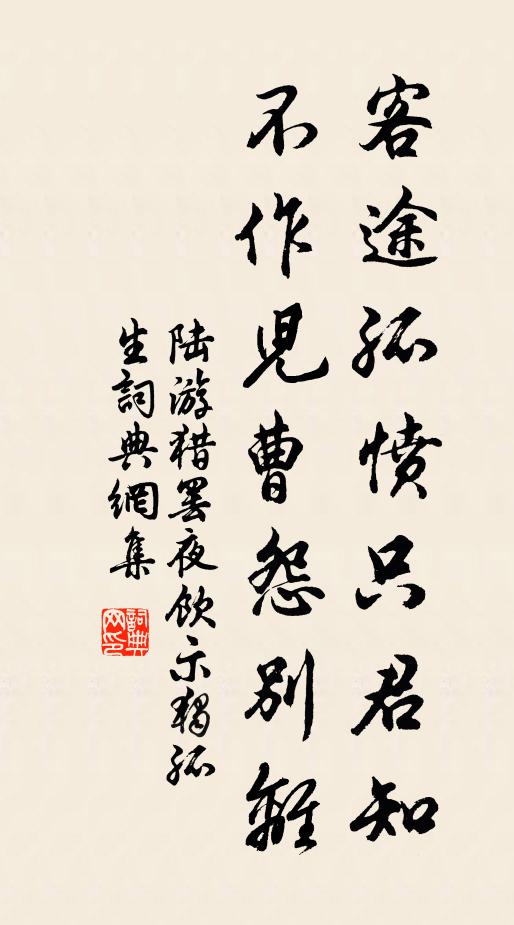 客途孤憤只君知
不作兒曹怨別離
陆游猎罢夜飲示獨孤
生詞典網集
詞典
网印